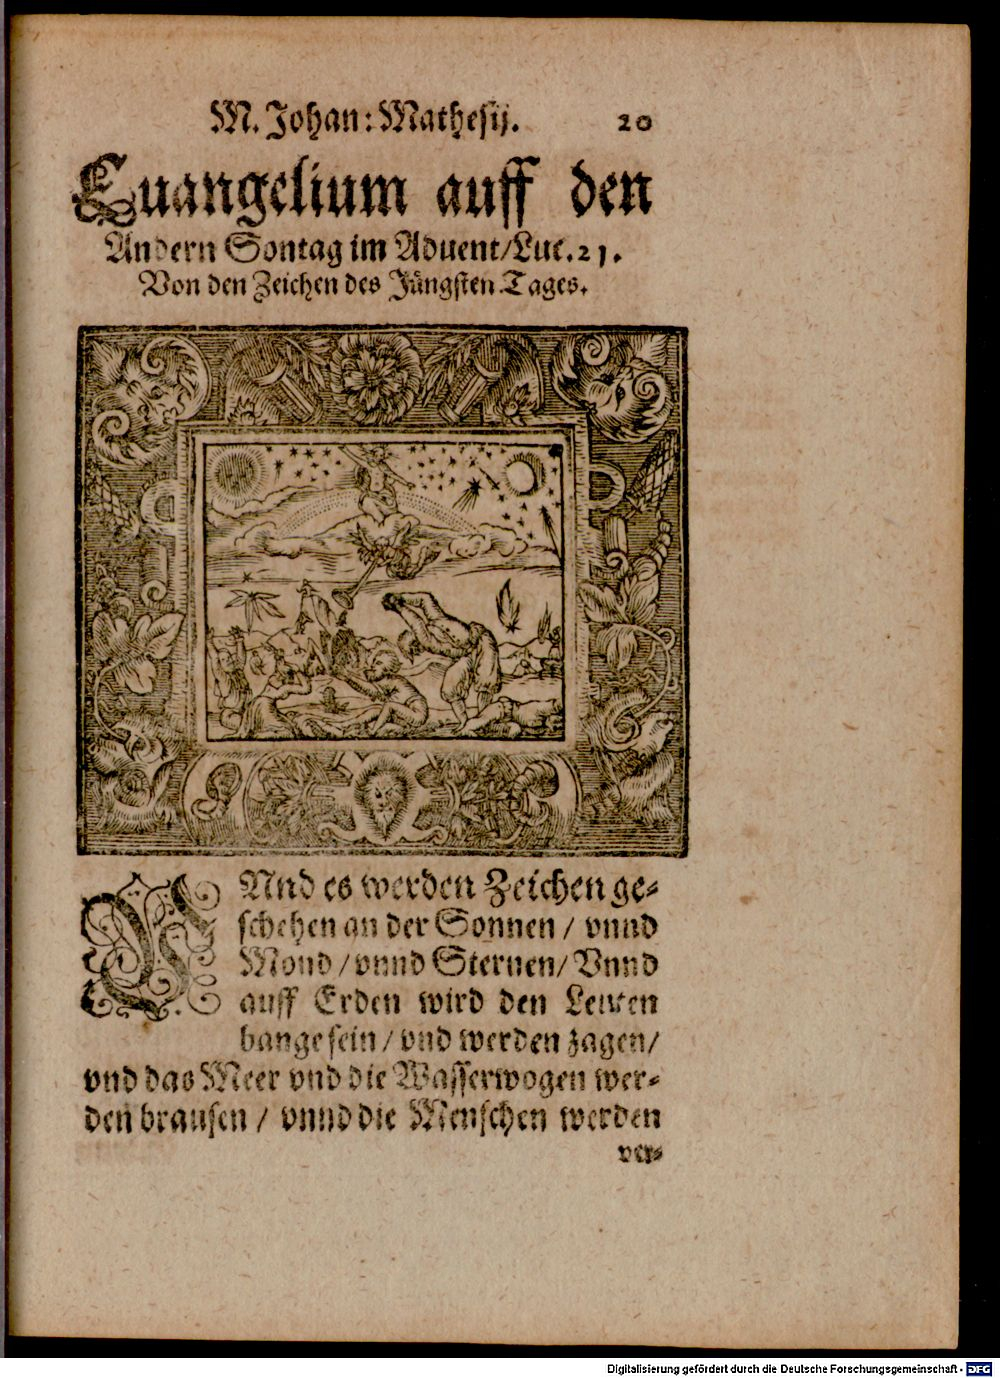 M. Johan: Mathesij. 20
Euangelium auff den
Andern Sontag im Aduent/Luc. 21.
Von den Zeichen des Jüngsten Tages.
VNnd es werden Zeichen ge-
schehen an der Sonnen / vnnd
Mond / vnnd Sternen / Vnnd
auff Erden wird den Leuten
bange sein / vnd werden zagen /
vnd das Meer vnd die Wasserwogen wer-
den brausen / vnnd die Menschen werden
ver-
Digitalisierung gefördert durch die Deutsche Forschungsgemeinschaft - DFG